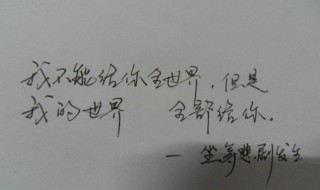 我不能给你全世界，但是
我的世界 全部给你。
—坐等悲剧发生